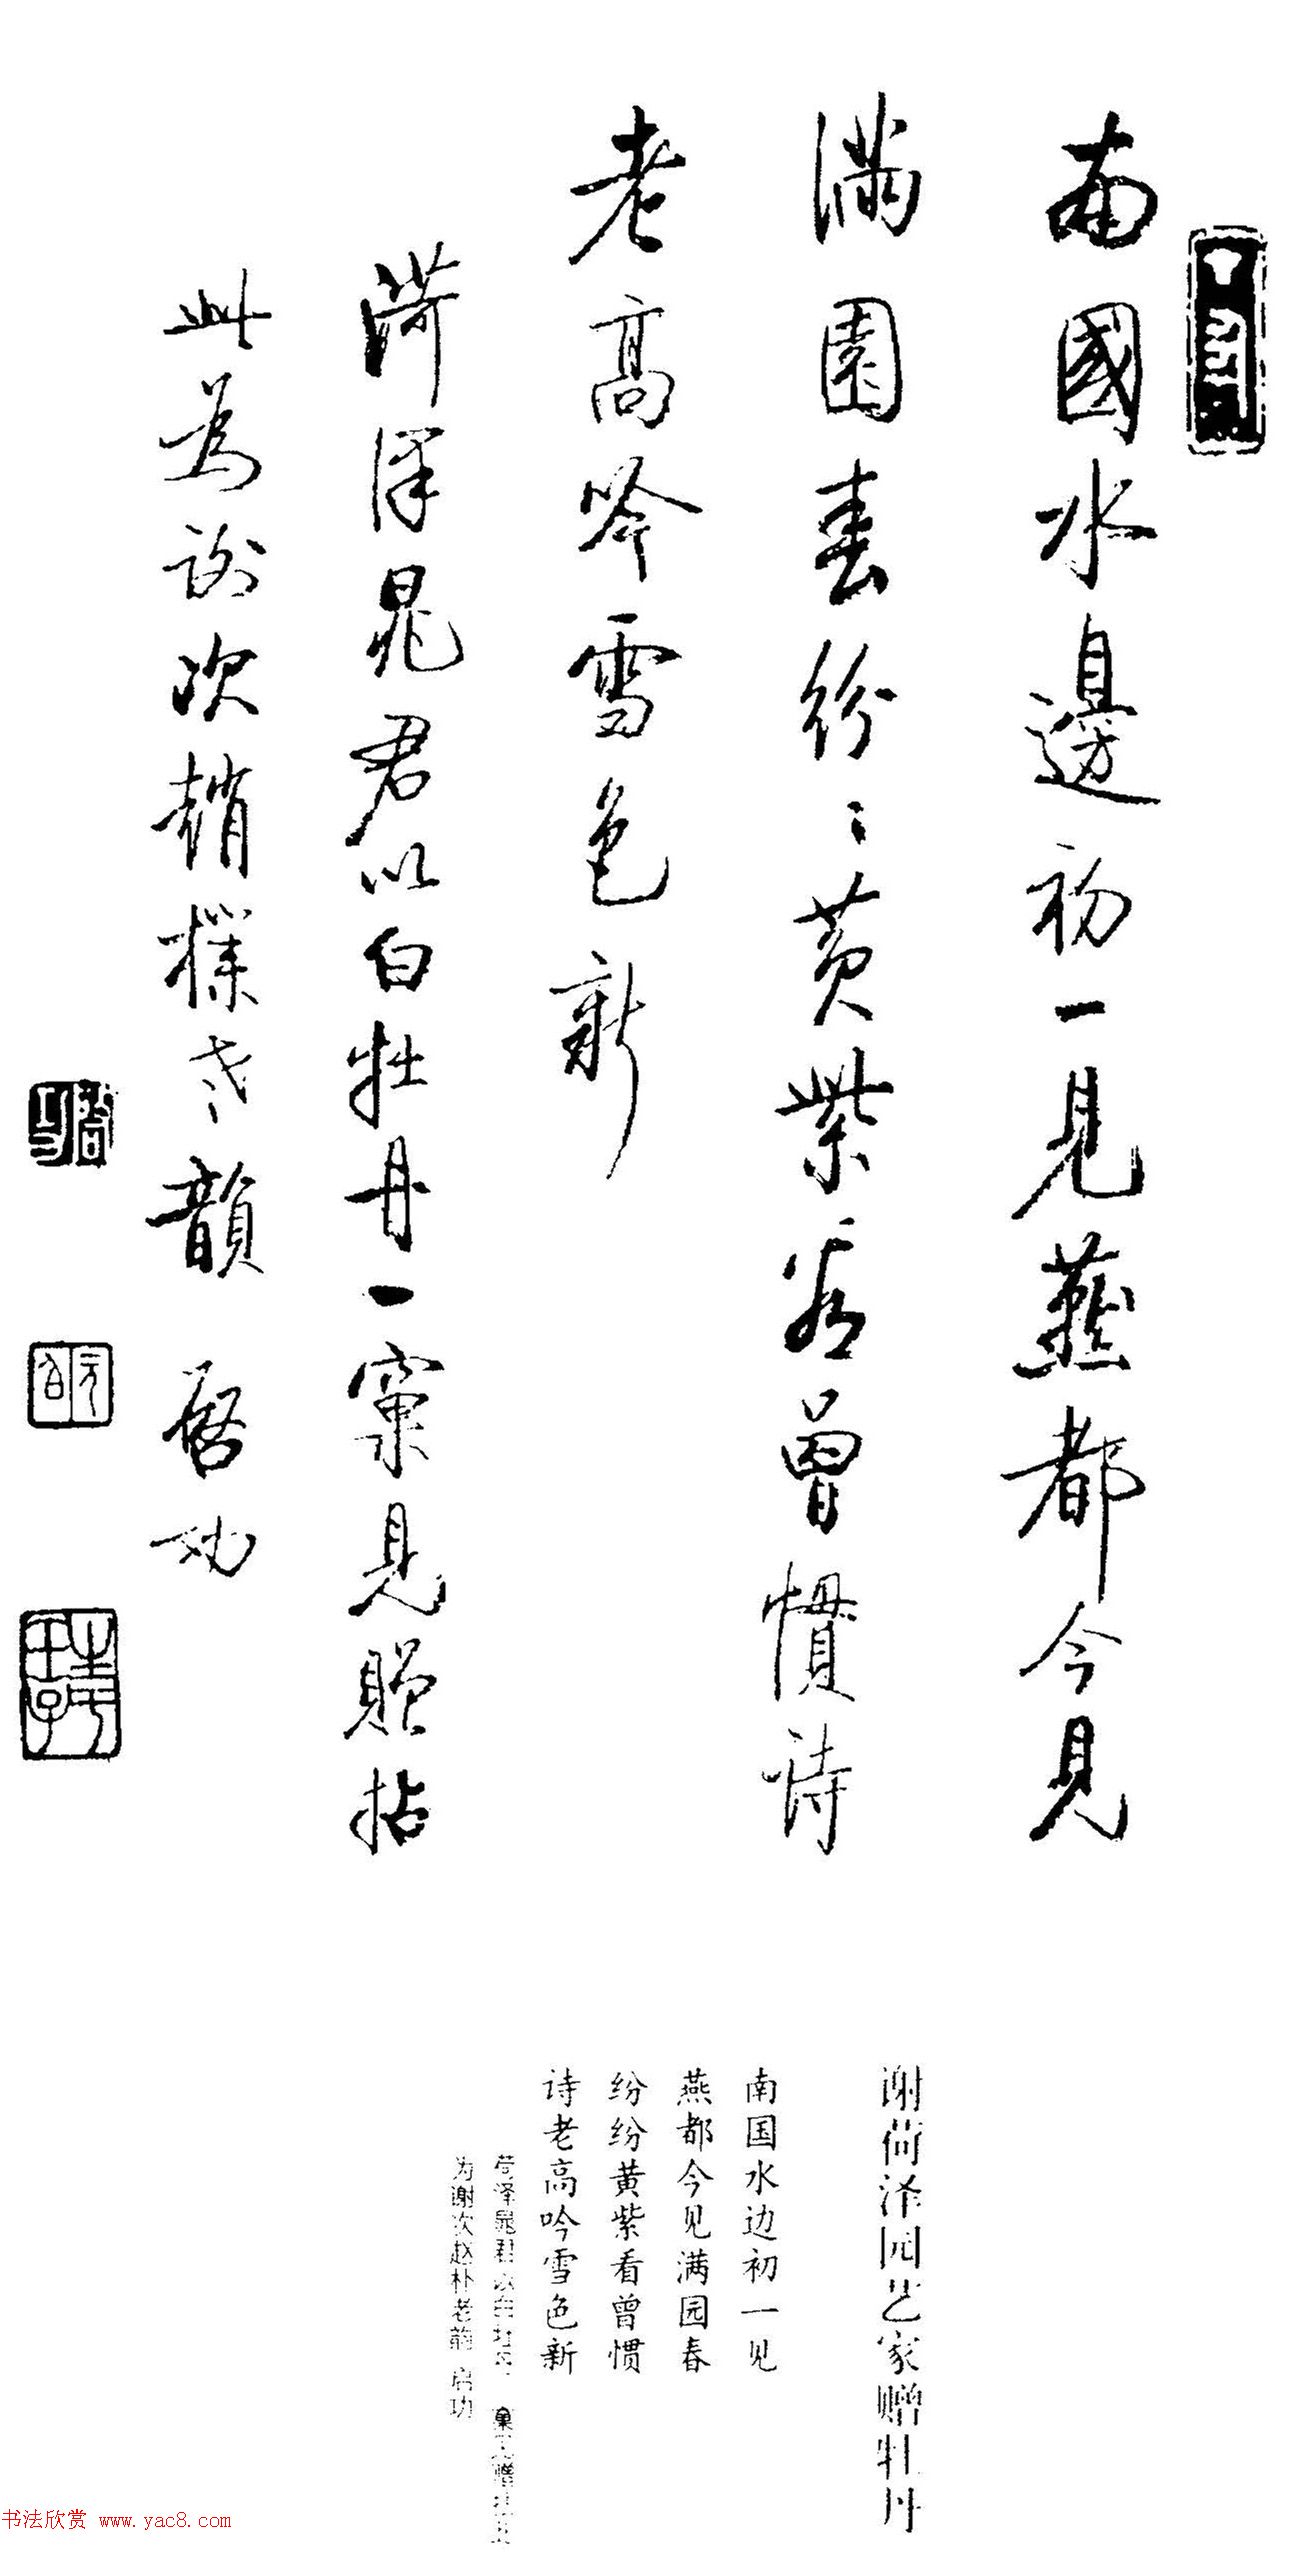 南國水邊初一見燕都今見
滿園春紛〻黃紫看曾慣詩
老高吟雪色新
菏澤晁君以白牡丹一窠見贈拈
此為謝次趙樸老韻 啟功
啟功
元白
谢荷泽园艺家赠牡丹
南国水边初一见
燕都今见满园春
纷纷黄紫看曾惯
诗老高吟雪色新
为谢次赵朴老韵 启功
书法欣赏 www.yac8.com